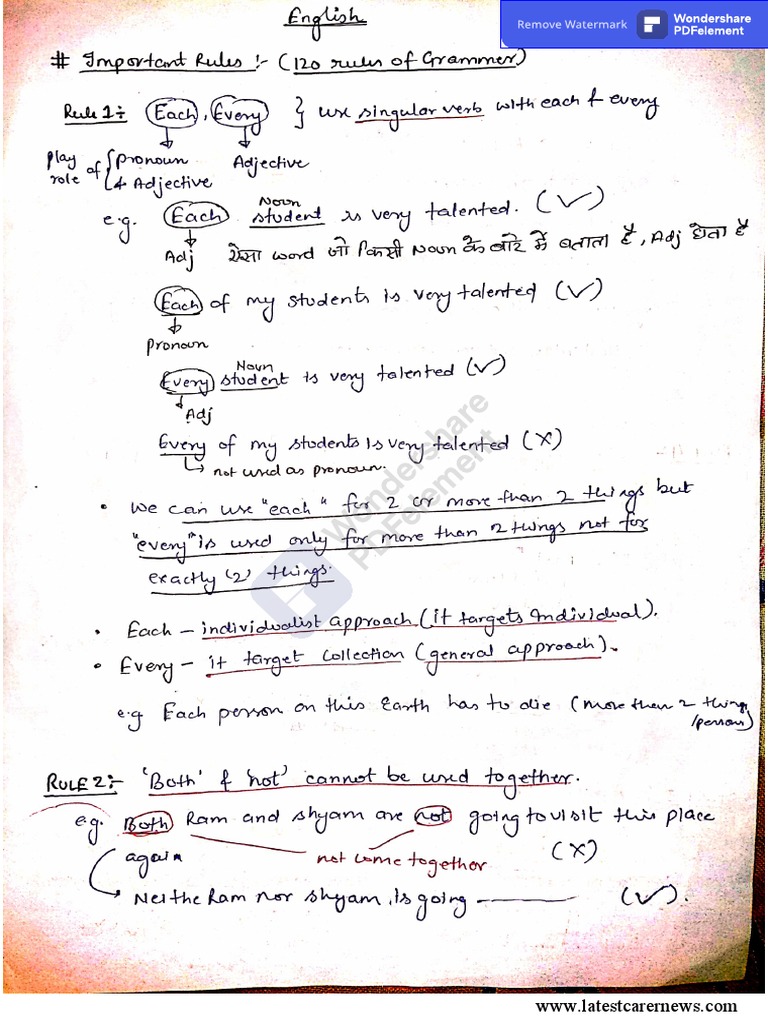 English
Remove Watermark Wondershare PDFelement
# Important Rules :- (120 rules of Grammer)
Rule 1:- Each, Every } use singular verb with each & every
play role of { pronoun & Adjective
Adjective
Noun
e.g. Each student is very talented. (✓)
Adj ऐसा word जो किसी Noun के बारे में बताता है, Adj होता है
Each of my students is very talented (✓)
pronoun
Noun
Every student is very talented (✓)
Adj
Every of my students is very talented (X)
not used as pronoun.
• We can use "each" for 2 or more than 2 things but
"every" is used only for more than 2 things not for
exactly (2) things.
• Each – individualist approach (it targets individual).
• Every – it target collection (general approach).
e.g Each person on this Earth has to die (more than 2 things
/person)
RULE 2:- 'Both' & 'not' cannot be used together.
e.g. Both Ram and shyam are not going to visit this place
again not come together (X)
Neither Ram nor shyam is going ——— (✓).
Wondershare
PDFelement
www.latestcarernews.com